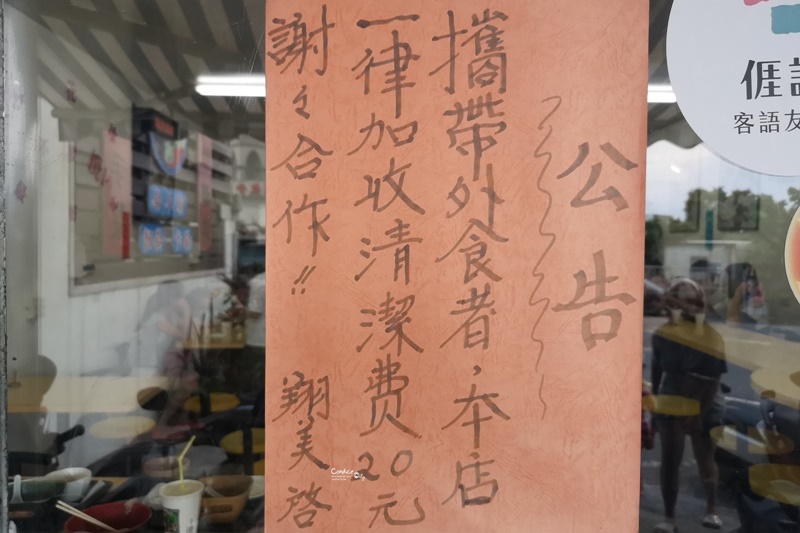 公告
攜帶外食者,本店
一律加收清潔費20元
謝々合作!!
翔美啓
客語友
Candice City